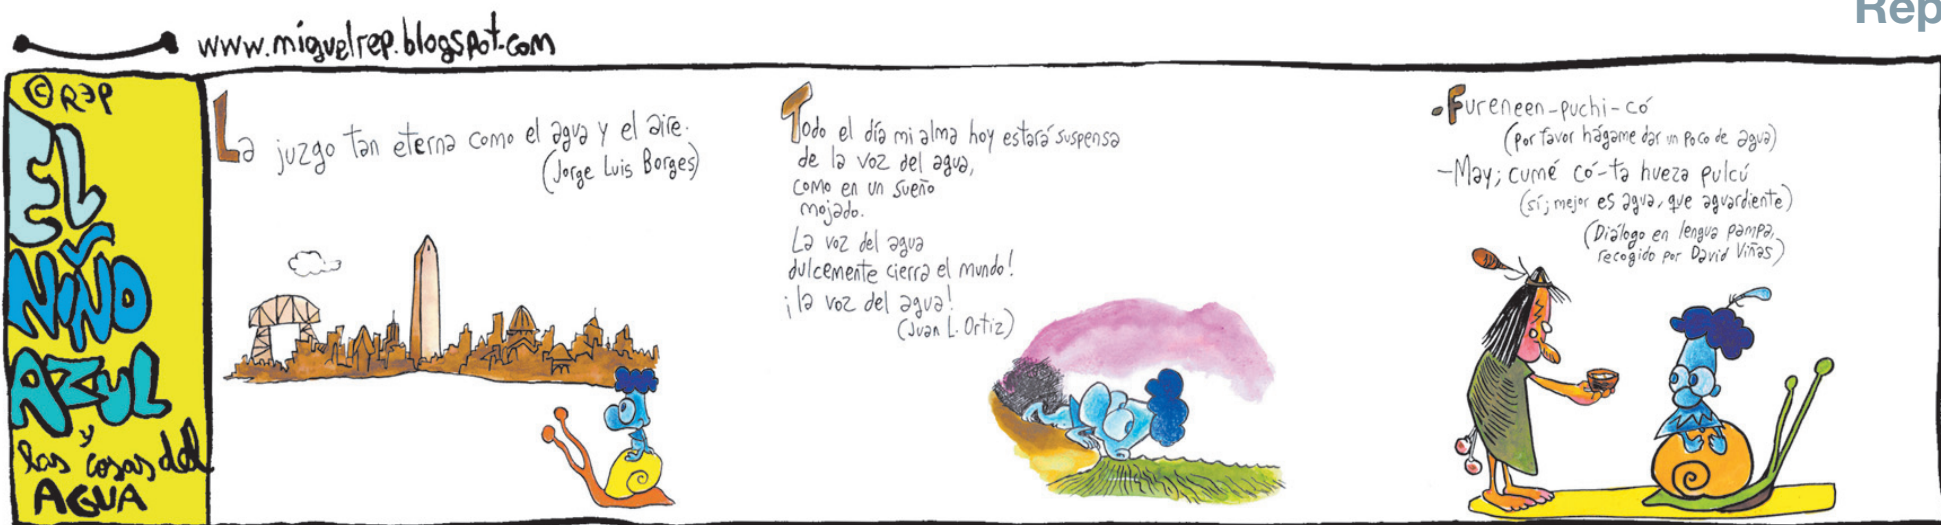 Rep
www.miguelrep.blogspot.com
© REP
EL
NIÑO
AZUL
y
las cosas del
AGUA
La juzgo tan eterna como el agua y el aire.
(Jorge Luis Borges)
Todo el día mi alma hoy estará suspensa
de la voz del agua,
como en un sueño
mojado.
La voz del agua
dulcemente cierra el mundo!
¡la voz del agua!
(Juan L. Ortiz)
-Fureneen-puchi-có
(por favor hágame dar un poco de agua)
-May; cumé có-ta hueza pulcú
(sí; mejor es agua, que aguardiente)
(Diálogo en lengua pampa,
recogido por David Viñas)